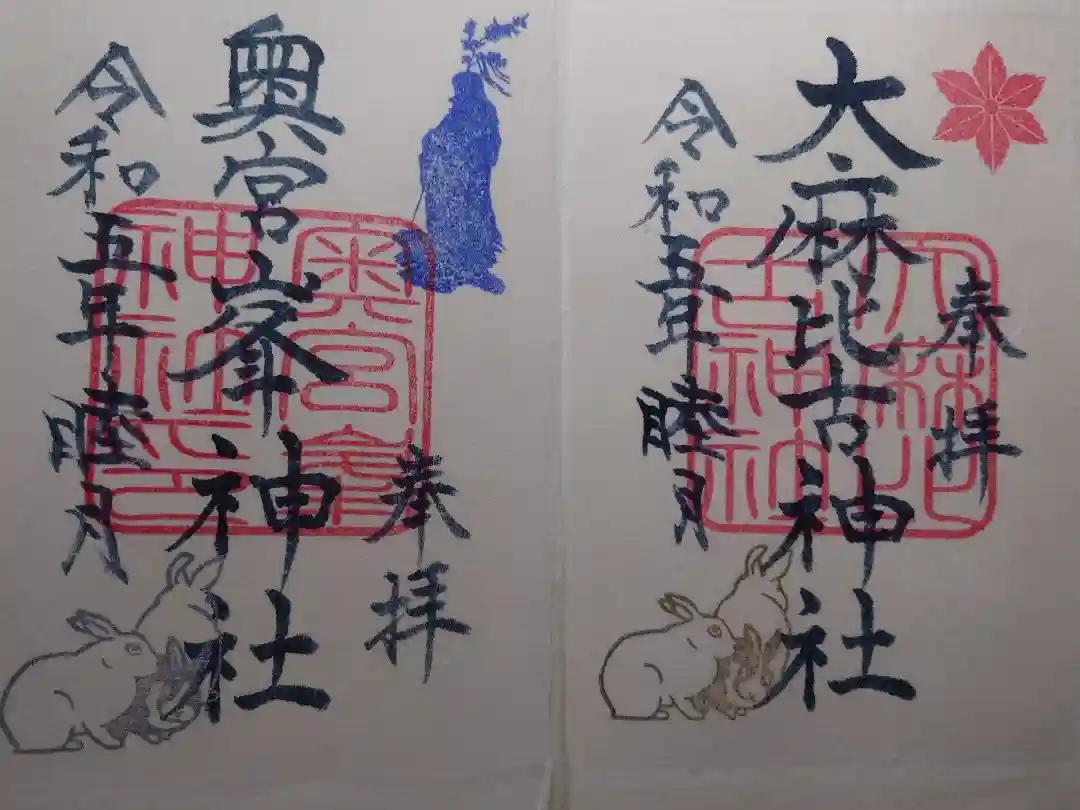 奉拝
大麻比古神社
大麻比
古神社
令和五年睦月
奉拝
奥宮峯神社
奥宮峯
神社之印
令和五年睦月